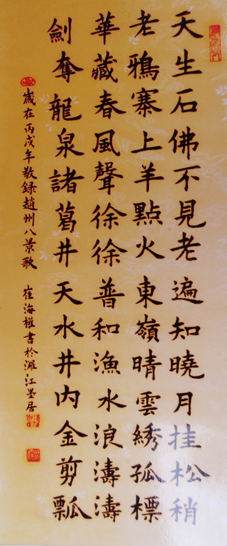 天生石佛不見老遍知曉月挂松稍
老鴉寨上羊點火東嶺晴雲綉孤標
華藏春風聲徐徐普和漁水浪濤濤
劍奪龍泉諸葛井天水井内金剪瓢
歲在丙戌年敬録趙州八景歌 崔海權書於濉江墨居